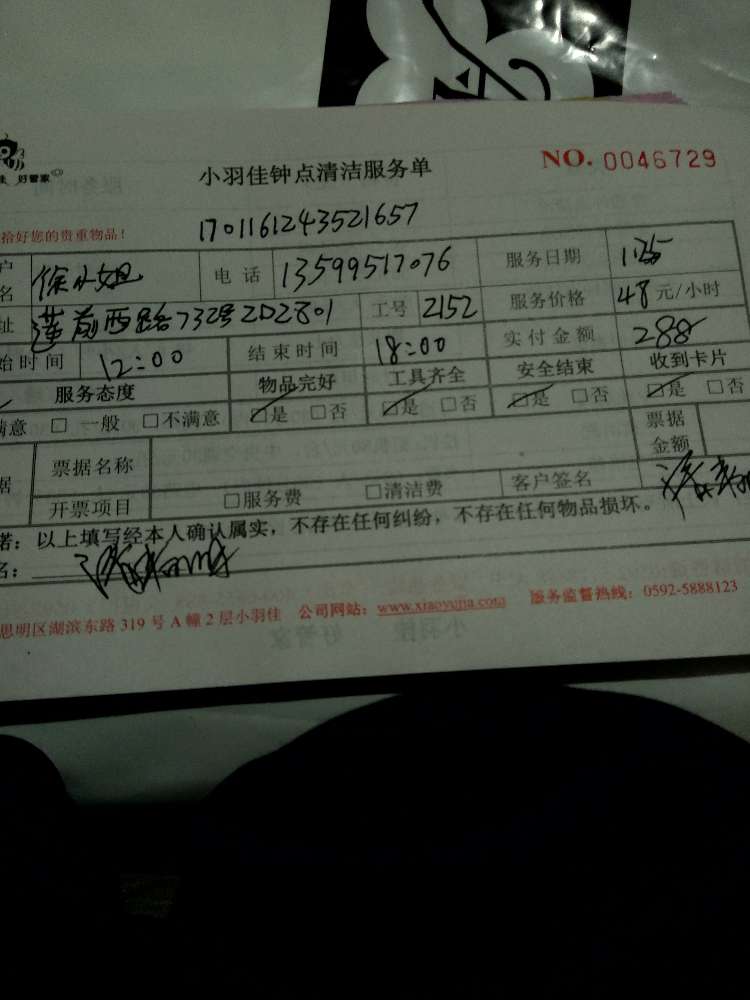 好管家
小羽佳钟点清洁服务单
NO. 0046729
拾好您的贵重物品!
1701161243521657
户名 徐小姐 电话 13599517076 服务日期 1.25
址 莲前西路732号2D2801 工号 2152 服务价格 48元/小时
始时间 12:00 结束时间 18:00 实付金额 288
服务态度 物品完好 工具齐全 安全结束 收到卡片
满意 □一般 □不满意 □是 □否 □是 □否 □是 □否 □是 □否
据 票据名称 票据金额
开票项目 □服务费 □清洁费 客户签名
诺:以上填写经本人确认属实,不存在任何纠纷,不存在任何物品损坏。
名:
思明区湖滨东路319号A幢2层小羽佳 公司网站:www.xiaoyujia.com 服务监督热线:0592-5888123